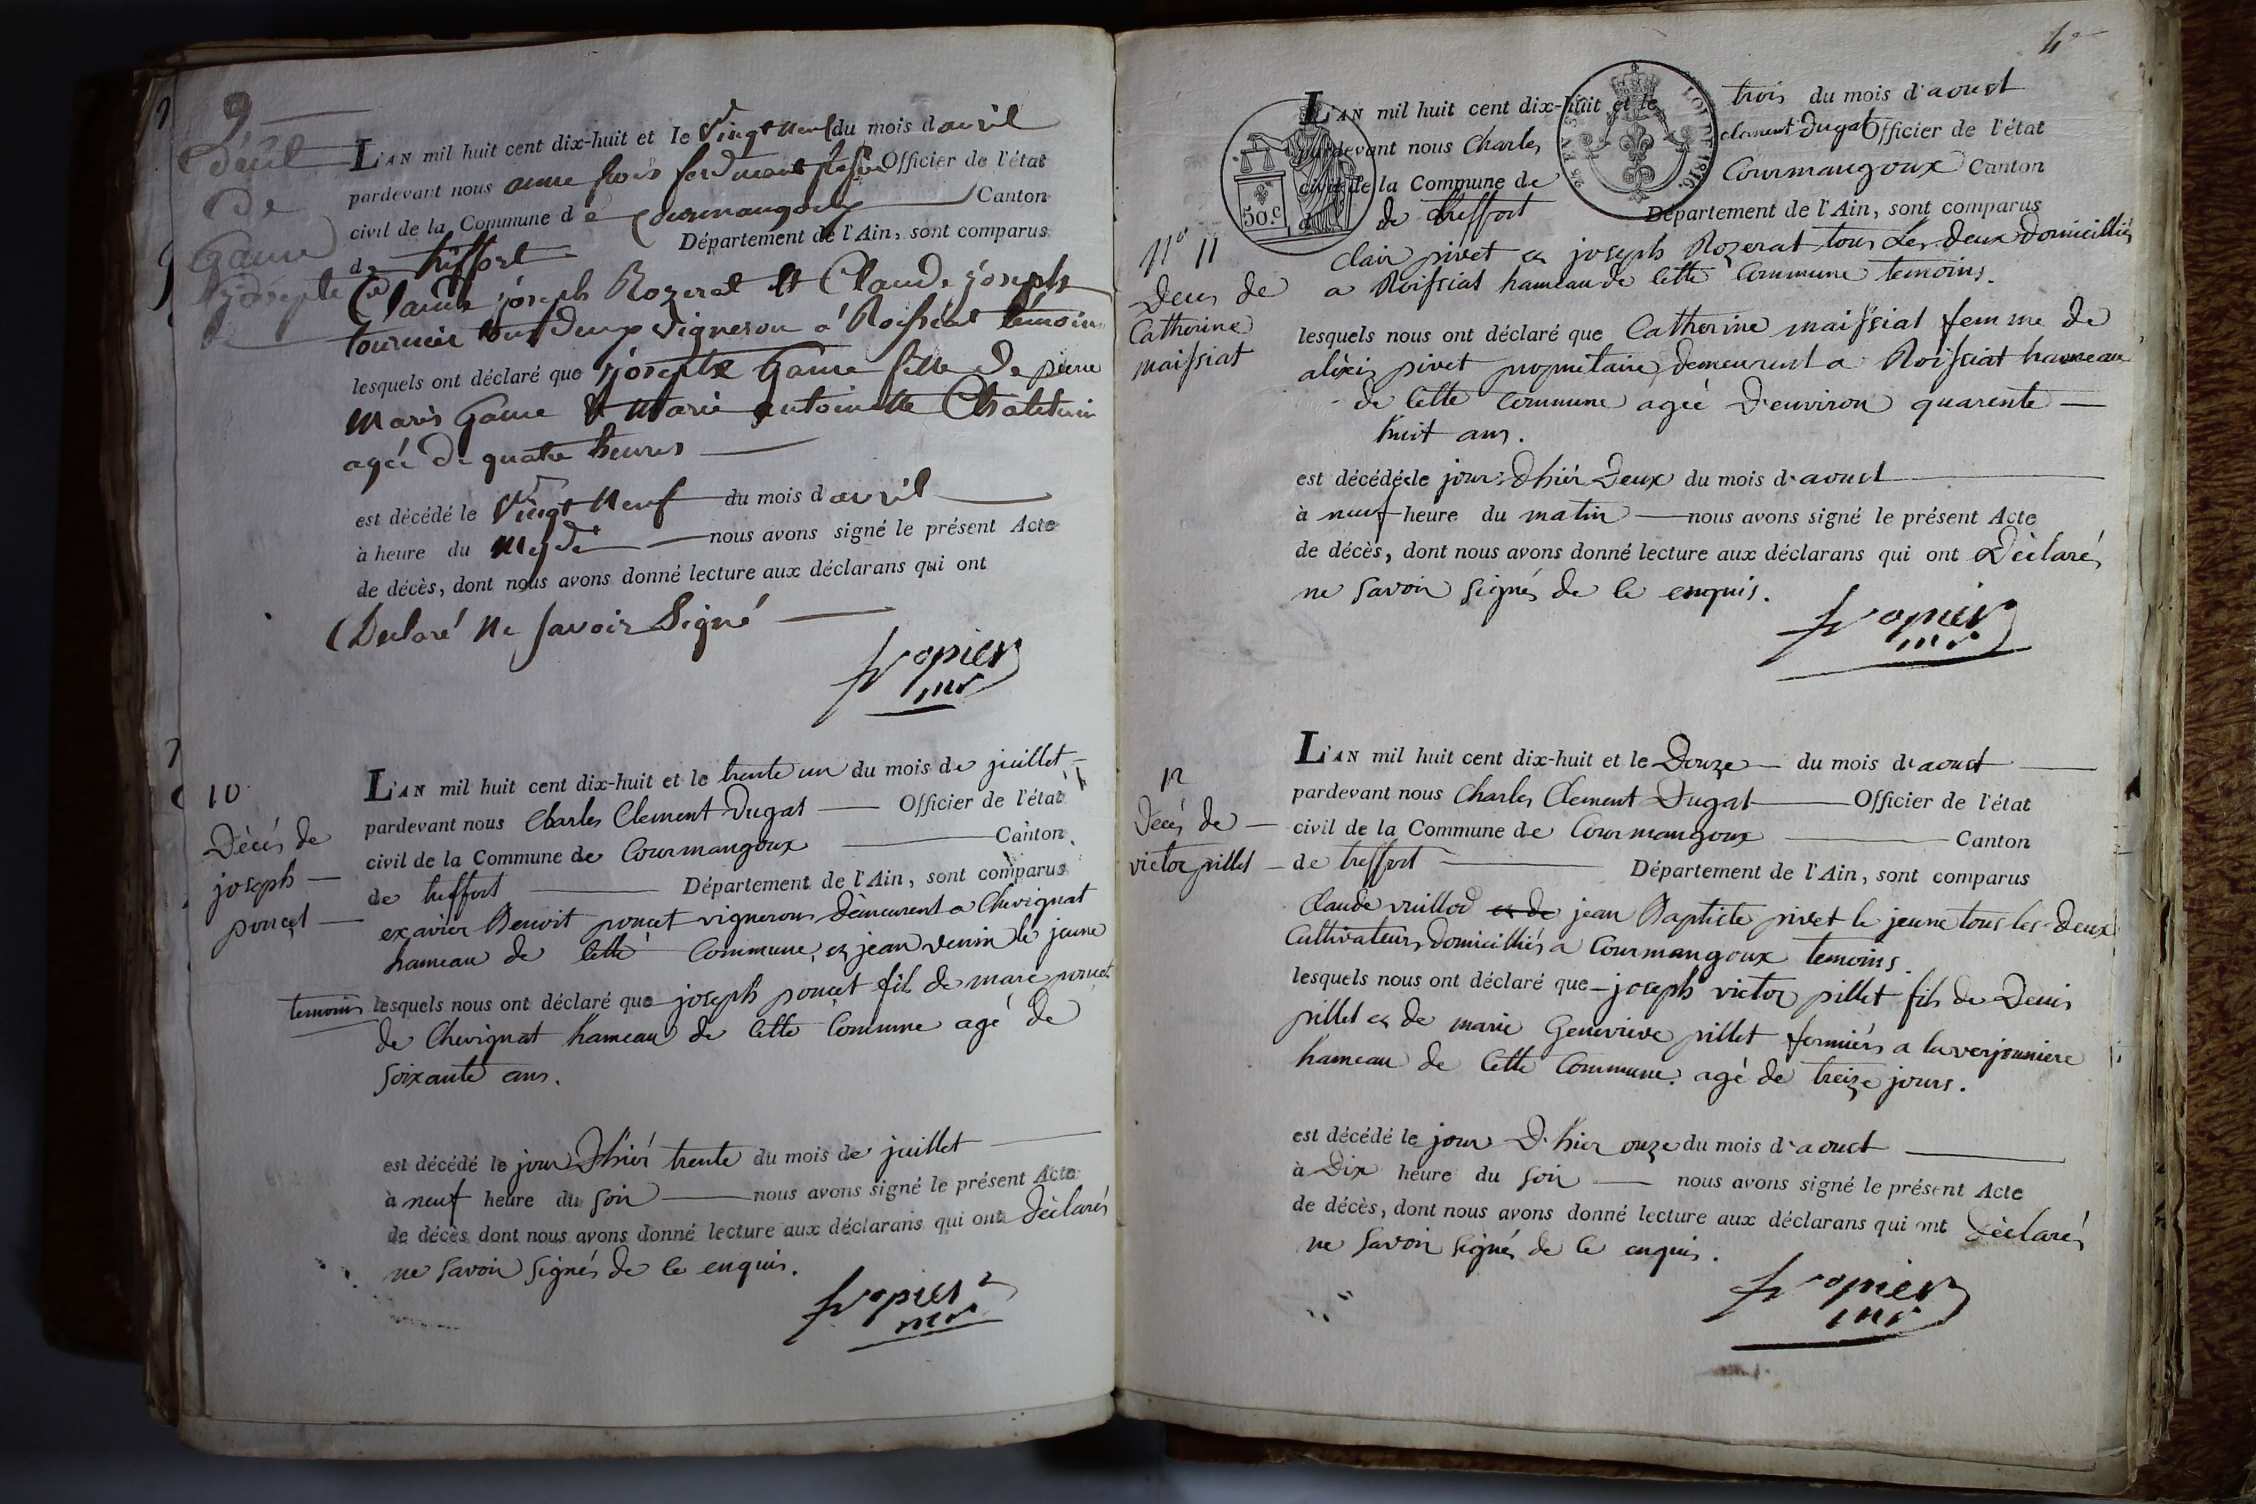 9
décès
de
Game
josephe
L'AN mil huit cent dix-huit et le vingt neuf du mois d'avril
pardevant nous anne fois ferdinant Officier de l'état
civil de la Commune de Courmangoux Canton
de treffort Département de l'Ain, sont comparus
Claude joseph Rozerat et Claude joseph
tournier tout deux vigneron a Roissiat temoins
lesquels ont déclaré que josephe Game fille de pierre
maris Game & marie antoinette Chatelain
agée de quatre heures
est décédé le vingt neuf du mois d'avril
à heure du meydi nous avons signé le présent Acte
de décès, dont nous avons donné lecture aux déclarans qui ont
Declaré ne savoir signé
fropier
mr
10
Décés de
joseph
poncet
L'AN mil huit cent dix-huit et le trente un du mois de juillet
pardevant nous Charles Clement Dugat Officier de l'état
civil de la Commune de Courmangoux Canton
de treffort Département de l'Ain, sont comparus
exavier Benoit poncet vigneron demeurent a Chevignat
hameau de cette Commune, et jean venin le jeune
temoins lesquels nous ont déclaré que joseph poncet fils de marc poncet
de Chevignat hameau de cette Comune agé de
soixante ans.
est décédé le jour D'hiér trente du mois de juillet
à neuf heure du soir nous avons signé le présent Acte
de décès dont nous avons donné lecture aux déclarans qui ont déclarés
ne savoir signés de ce enquis.
fropier
mr
4
L'AN mil huit cent dix-huit et le trois du mois d'aoust
pardevant nous Charles clement Dugat Officier de l'état
civil de la Commune de Courmangoux Canton
de treffort Département de l'Ain, sont comparus
50.c
LOI DE 1816.
n° 11
Deces de
Catherine
maissiat
clair pivet et joseph Rozerat tous les deux domicilliés
a Roissiat hameau de cette Commune temoins.
lesquels nous ont déclaré que Catherine maissiat femme de
aléxis pivet proprietaire demeurent a Roissiat hameau
de cette Commune agée D'environ quarente
huit ans.
est décédé le jour D'hiér Deux du mois d'aoust
à neuf heure du matin nous avons signé le présent Acte
de décès, dont nous avons donné lecture aux déclarans qui ont Déclarés
ne savoir signés de ce enquis.
fropier
mr
12
Décés de
victor pillet
L'AN mil huit cent dix-huit et le Douze du mois d'aoust
pardevant nous Charles Clement Dugat Officier de l'état
civil de la Commune de Courmangoux Canton
de treffort Département de l'Ain, sont comparus
Claude vuillod et de jean Baptiste pivet le jeune tous les deux
Cultivateurs domicilliés a Courmangoux temoins.
lesquels nous ont déclaré que joseph victor pillet fils de Denis
pillet et de marie Genevieve pillet fermiérs a la verjonniere
hameau de cette Commune. agé de treize jours.
est décédé le jour D'hier onze du mois d'aoust
à Dix heure du soir nous avons signé le présent Acte
de décès, dont nous avons donné lecture aux déclarans qui ont déclarés
ne savoir signés de ce enquis.
fropier
mr